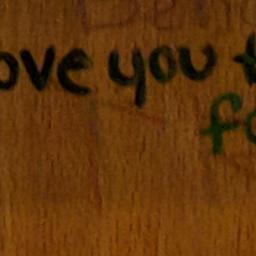 ove you t
fo